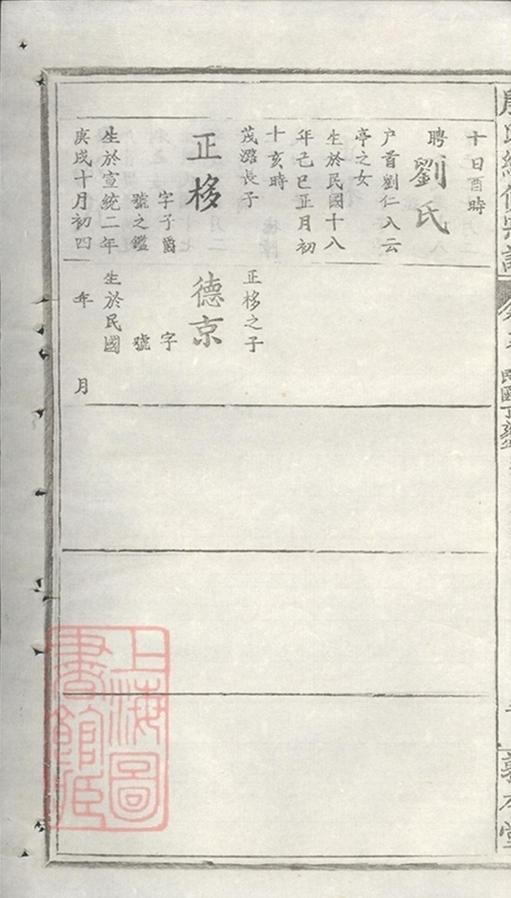 十日酉時
聘劉氏
户首劉仁入云
亭之女
生於民國十八
年己巳正月初
十亥時
茂瀿長子
正移
字子爵
號之鑑
生於宣統二年
庚戌十月初四
正移之子
德京
字
號
生於民國
年 月
上海圖
書館臧